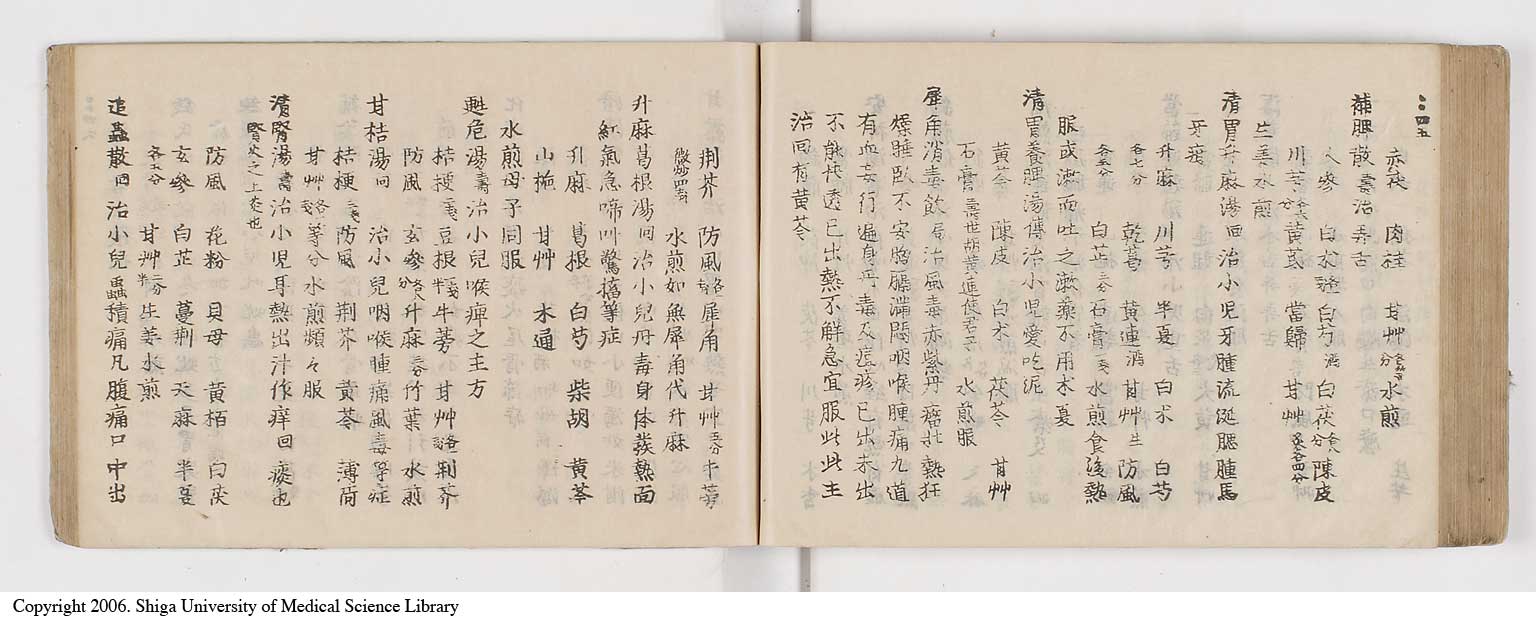 赤茯 肉桂 甘艸 水煎
補脾散 壽 治弄舌
人參 白朮 白芍 酒 白茯 陳皮
川芎 黃芪 當歸 甘艸
生姜水煎
清胃升麻湯 回 治小児牙腫流涎腮腫馬
牙疳
升麻 川芎 半夏 白朮 白芍
各七分 乾葛 黃連 酒 甘艸 生 防風
各五分 白芷 石膏 水煎食後熱
服或漱而吐之漱藥不用朮夏
清胃養脾湯 傳 治小児愛吃泥
黃芩 陳皮 白朮 茯苓 甘艸
石膏 壽世胡黃連使君子 水煎服
犀角消毒飲 治風毒赤紫丹瘤壯熱狂
燥睡臥不安胸膈滿悶咽喉腫痛九道
有血妄行遍身丹毒及痘疹已出未出
不能快透已出熱不解急宜服此此主
治回有黃芩
荆芥 防風 犀角 甘艸 牛蒡
水煎如魚犀角代升麻
升麻葛根湯 回 治小兒丹毒身体發熱面
紅氣急啼叫驚搐等症
升麻 葛根 白芍 柴胡 黃芩
山梔 甘艸 木通
水煎母子同服
甦危湯 壽 治小兒喉痺之主方
桔梗 豆根 牛蒡 甘艸 荆芥
防風 玄參 升麻 竹葉 水煎
甘桔湯 回 治小兒咽喉腫痛風毒等症
桔梗 防風 荆芥 黃芩 薄荷
甘艸 等分水煎頻々服
清腎湯 壽 治小児耳熱出汁作痒回 瘀也
腎火之上炎也
防風 花粉 貝母 黃栢 白茯
玄參 白芷 蔓荆 天麻 半夏
各七分 甘艸 生姜水煎
追蟲散 回 治小兒蟲積痛凡腹痛口中出
Copyright 2006. Shiga University of Medical Science Library